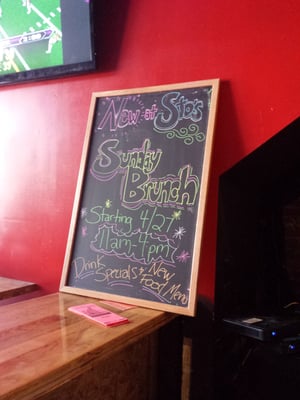 New at Sto's
Sunday
Brunch
Starting 4/27
11am-4pm
Drink Specials + New Food Menu